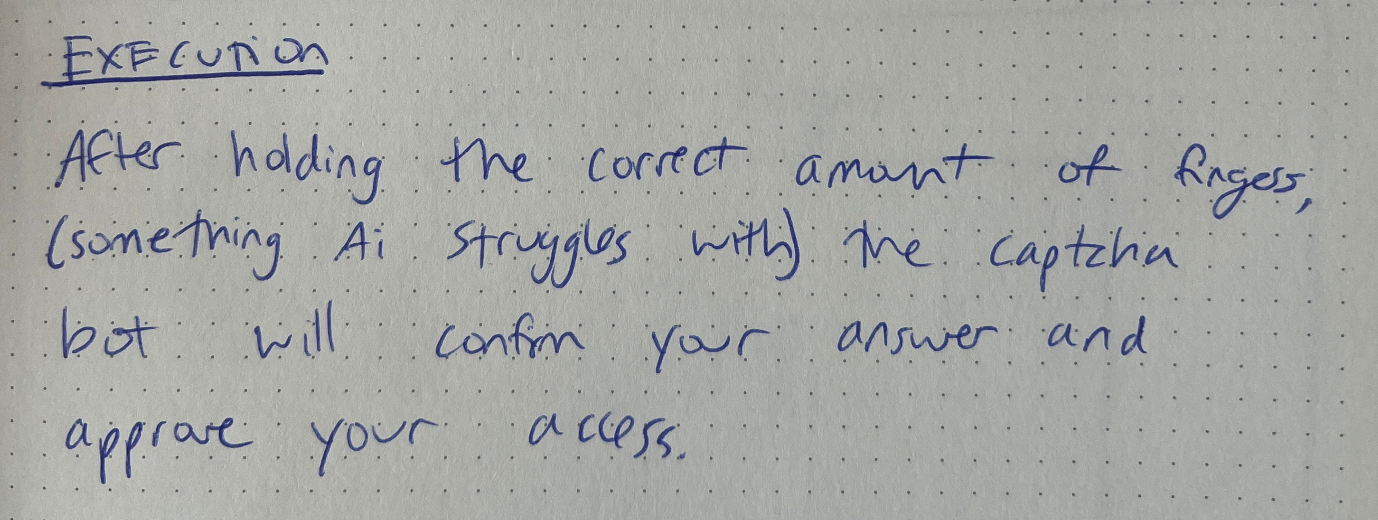 EXECUTION
After holding the correct amount of fingers,
(something Ai struggles with) the captcha
bot will confirm your answer and
approve your access.